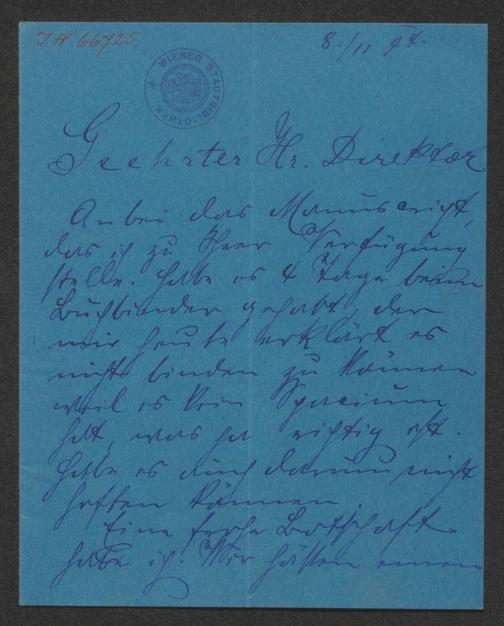 I.N 66725
8./11 94.
WIENER STADTBIBLIOTHEK
Geehrter Hr. Direktor
Anbei das Manuscript,
das ich zu Ihrer Verfügung
stelle. Habe es 4 Tage beim
Buchbinder gehabt, der
mir heute erklärt es
nicht binden zu können
weil es kein Spacium
hat, was ja richtig ist.
Habe es auch darum nicht
heften können
Eine frohe Botschaft
habe ich. Wir hätten einen